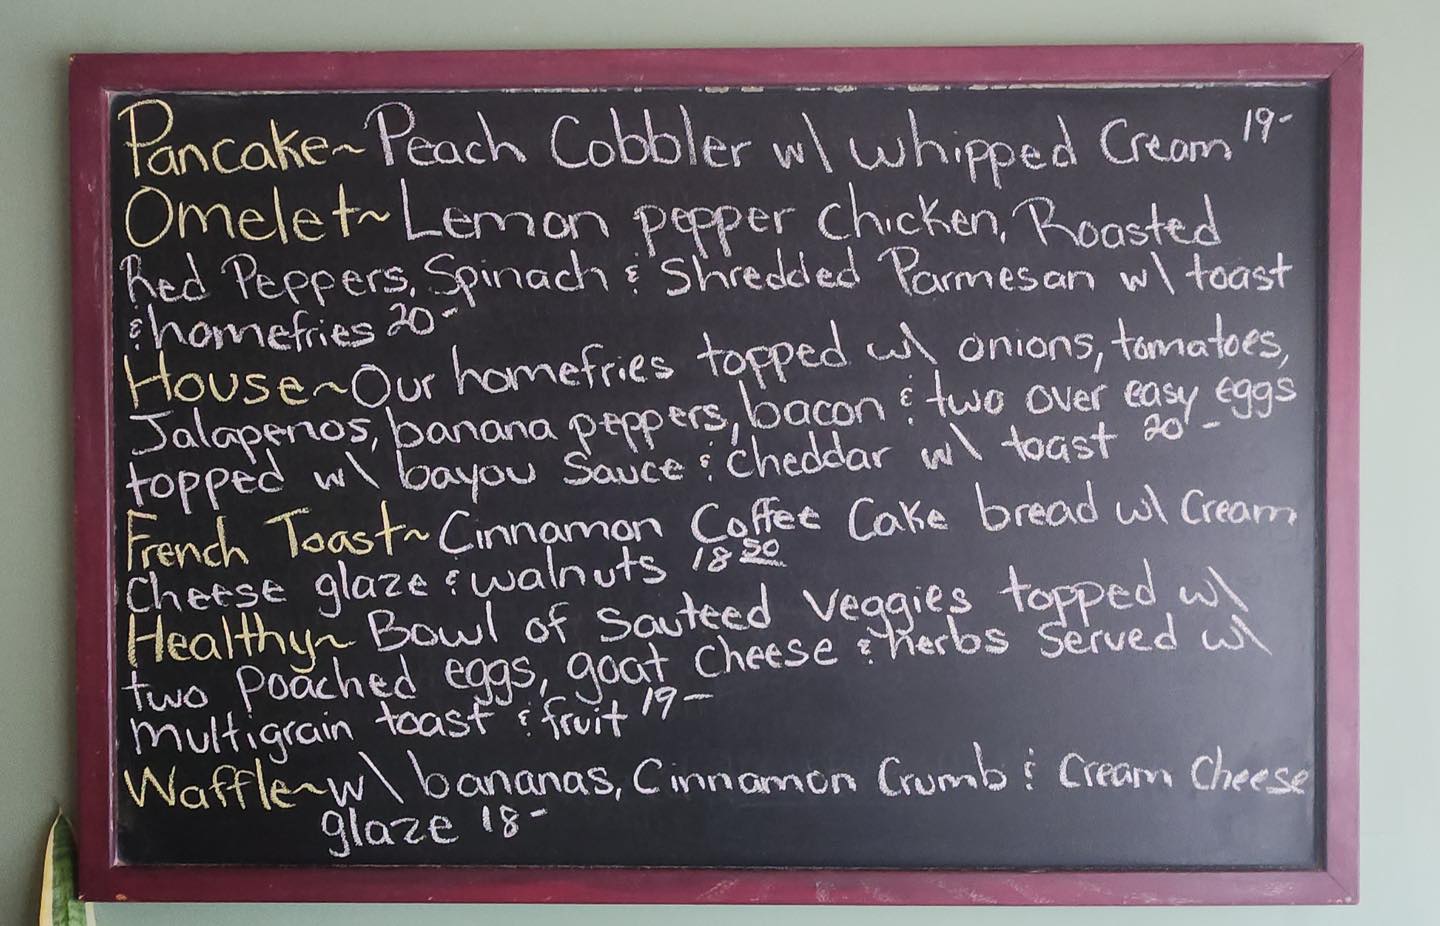 Pancake~Peach Cobbler w\ whipped Cream 19-
Omelet~Lemon pepper chicken, Roasted
Red Peppers, Spinach & Shredded Parmesan w\ toast
& homefries 20-
House~Our homefries topped w\ onions, tomatoes,
Jalapenos, banana peppers, bacon & two over easy eggs
topped w\ bayou Sauce & cheddar w\ toast 20-
French Toast~Cinnamon Coffee Cake bread w\ Cream
Cheese glaze & walnuts 18 50
Healthy~Bowl of Sauteed veggies topped w\
two poached eggs, goat cheese & herbs served w\
multigrain toast & fruit 19-
Waffle~w\ bananas, Cinnamon Crumb & Cream Cheese
glaze 18-